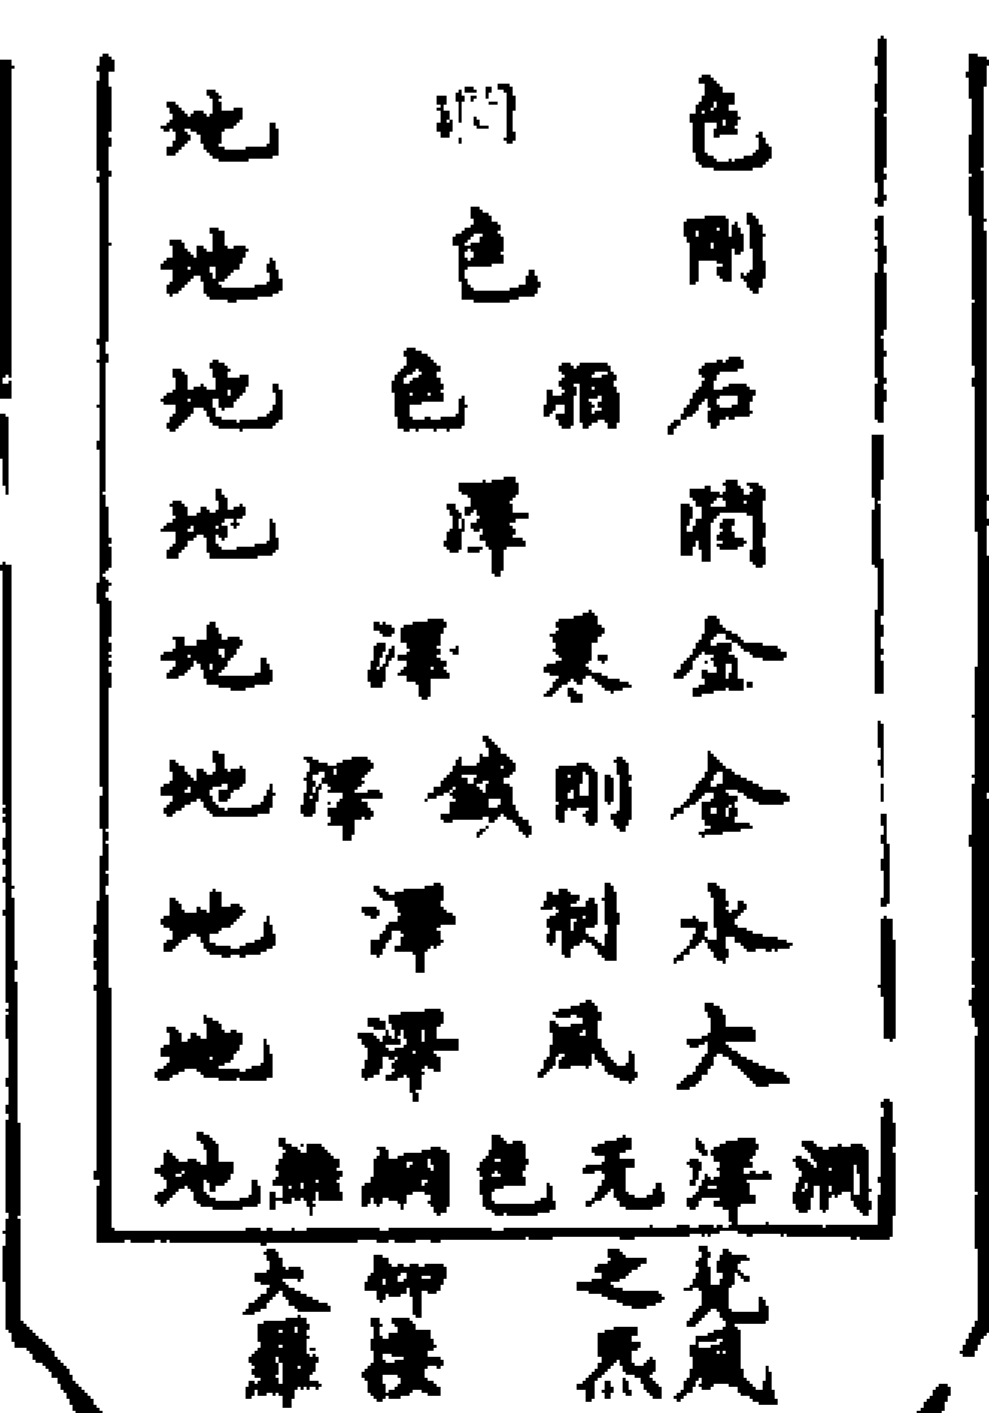 色潤地
剛色地
石脂色地
潤澤地
金粟澤地
金剛鐵澤地
水制澤地
大風澤地
澤无色綱維地
梵風
之炁
仰接
大羅